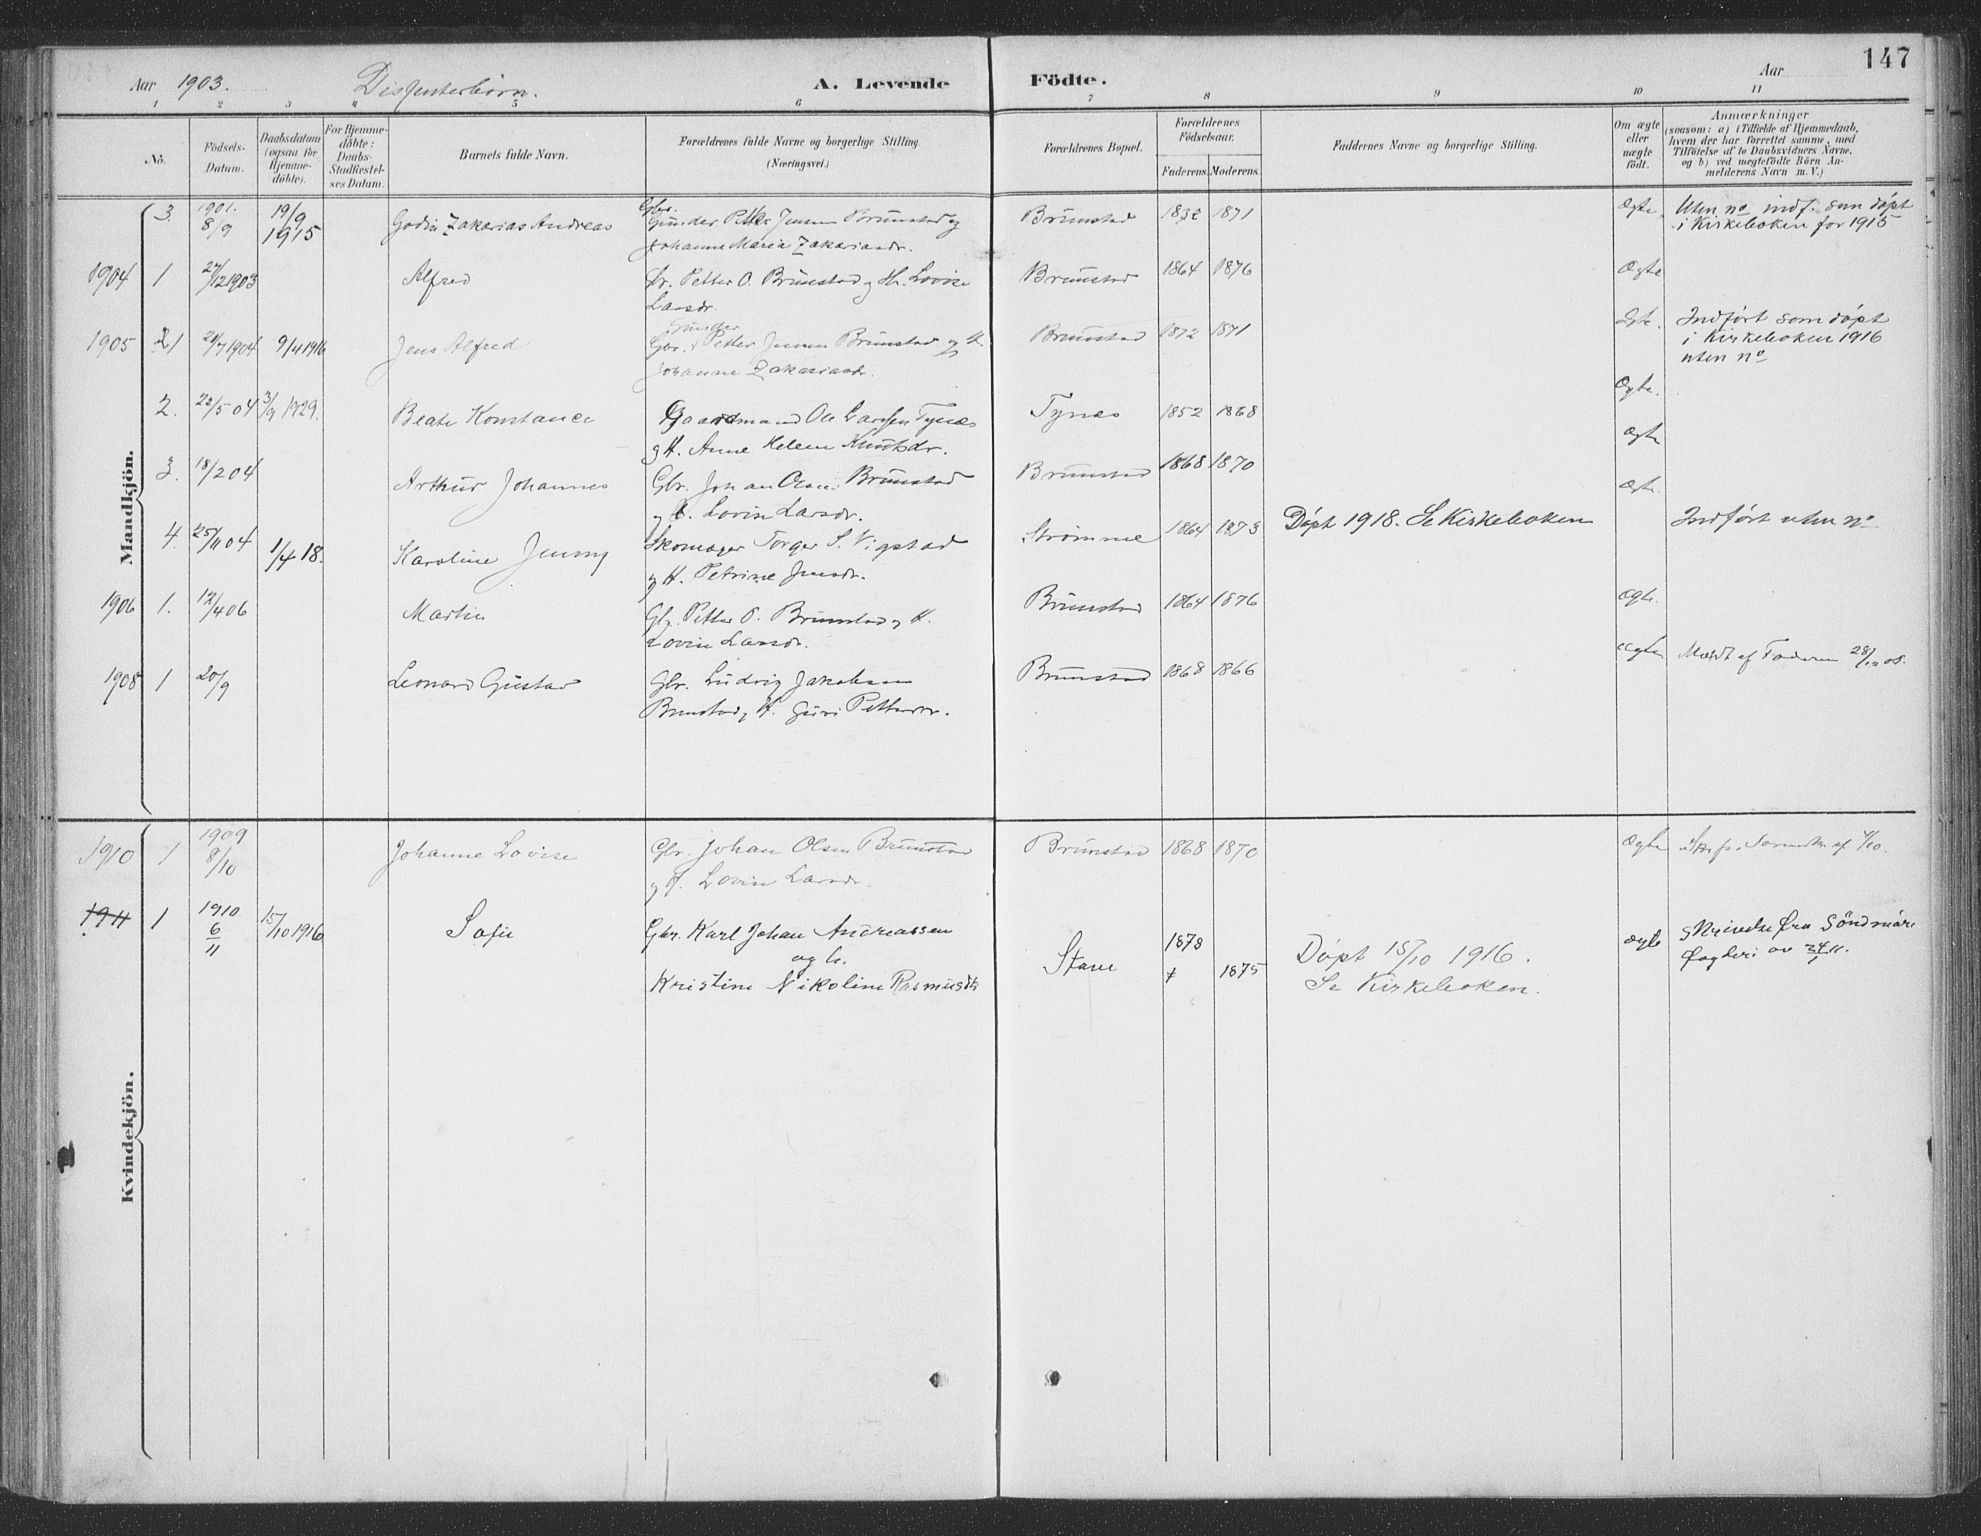 147
Aar 1903. Dissenterbørn. A. Levende Födte. Aar
1 2 3 4 5 6 7 8 9 10 11
No.
Födsels-Datum.
Daabsdatum (ogsaa for Hjemmedöbte).
For Hjemmedöbte: Daabs-Stadfæstelses Datum.
Barnets fulde Navn.
Forældrenes fulde Navne og borgerlige Stilling. (Næringsvei.)
Forældrenes Bopæl.
Forældrenes Födselsaar.
Faderens. Moderens.
Faddernes Navne og borgerlige Stilling.
Om ægte eller uægte födt.
Anmærkninger
(saasom: a) i Tilfælde af Hjemmedaab,
hvem der har forrettet samme, med
Tilföielse af to Daabsvidners Navne,
og b) ved uegtefödte Börn An-
melderens Navn m.V.)
Mandkjön.
3. 1901. 8/9 19/9 1915 Godin Zakarias Andreas Gbr. Gunder Jensen Brunstad og Brunstad 1832 1871 Ægte. Uten no indf. som døpt
Johanne Maria Zakariasdr. i Kirkeboken for 1915
1904 1 27/12 1903 Alfred Gbr. Petter O. Brunstad og H. Lovise Brunstad 1864 1876 Ægte
Larsdr.
Gunder
1905 1 1904 9/4 1916 Jens Alfred Gbr. Petter Jensen Brunstad og H. Brunstad 1872 1871 Ægte. Indført som døpt
Johanne Zakariasdr. i Kirkeboken 1916
uten no
2. 22/5 04 3/9 1929. Beate Konstance Gaardmand Ole Larssen Tynæs Tynes 1852 1868 Ægte.
og H. Anne Helene Knutsdr.
3. 18/2 04 Arthur Johannes Gbr. Johan Olsen Brunstad Brunstad 1868 1870 Ægte
og H. Lovise Larsdr.
4. 25/11 04 1/4 18. Karoline Jenny Skomager Torger S. Vigstad Strømme 1864 1873 Døpt 1918. Se Kirkeboken Ægte. Indført uten no
og H. Petrine Jensdr.
1906 1. 12/4 06 Martin Gbr. Petter O. Brunstad og H. Brunstad 1864 1876 Ægte.
Lovise Larsdr.
1908 1 20/9 Leonard Gustav Gbr. Ludvig Jakobsen Brunstad 1868 1866 Ægte Meldt af Faderen 28/10 08.
Brunstad og H. Guri Pettersdr.
Kvindekjön.
1910 1 1909 8/10 Johanne Lovise Gbr. Johan Olsen Brunstad Brunstad 1868 1870 Ægte
og H. Lovise Larsdr.
1911 1 1910 6/11 15/10 1916 Sofie Gbr. Karl Johan Andreassen Stave 1878 Døpt 15/10 1916. ægte Skrivelse fra Söndmöre
og h. 1875 Se Kirkeboken. Fogderi av
Kristine Nikoline Rasmusdtr